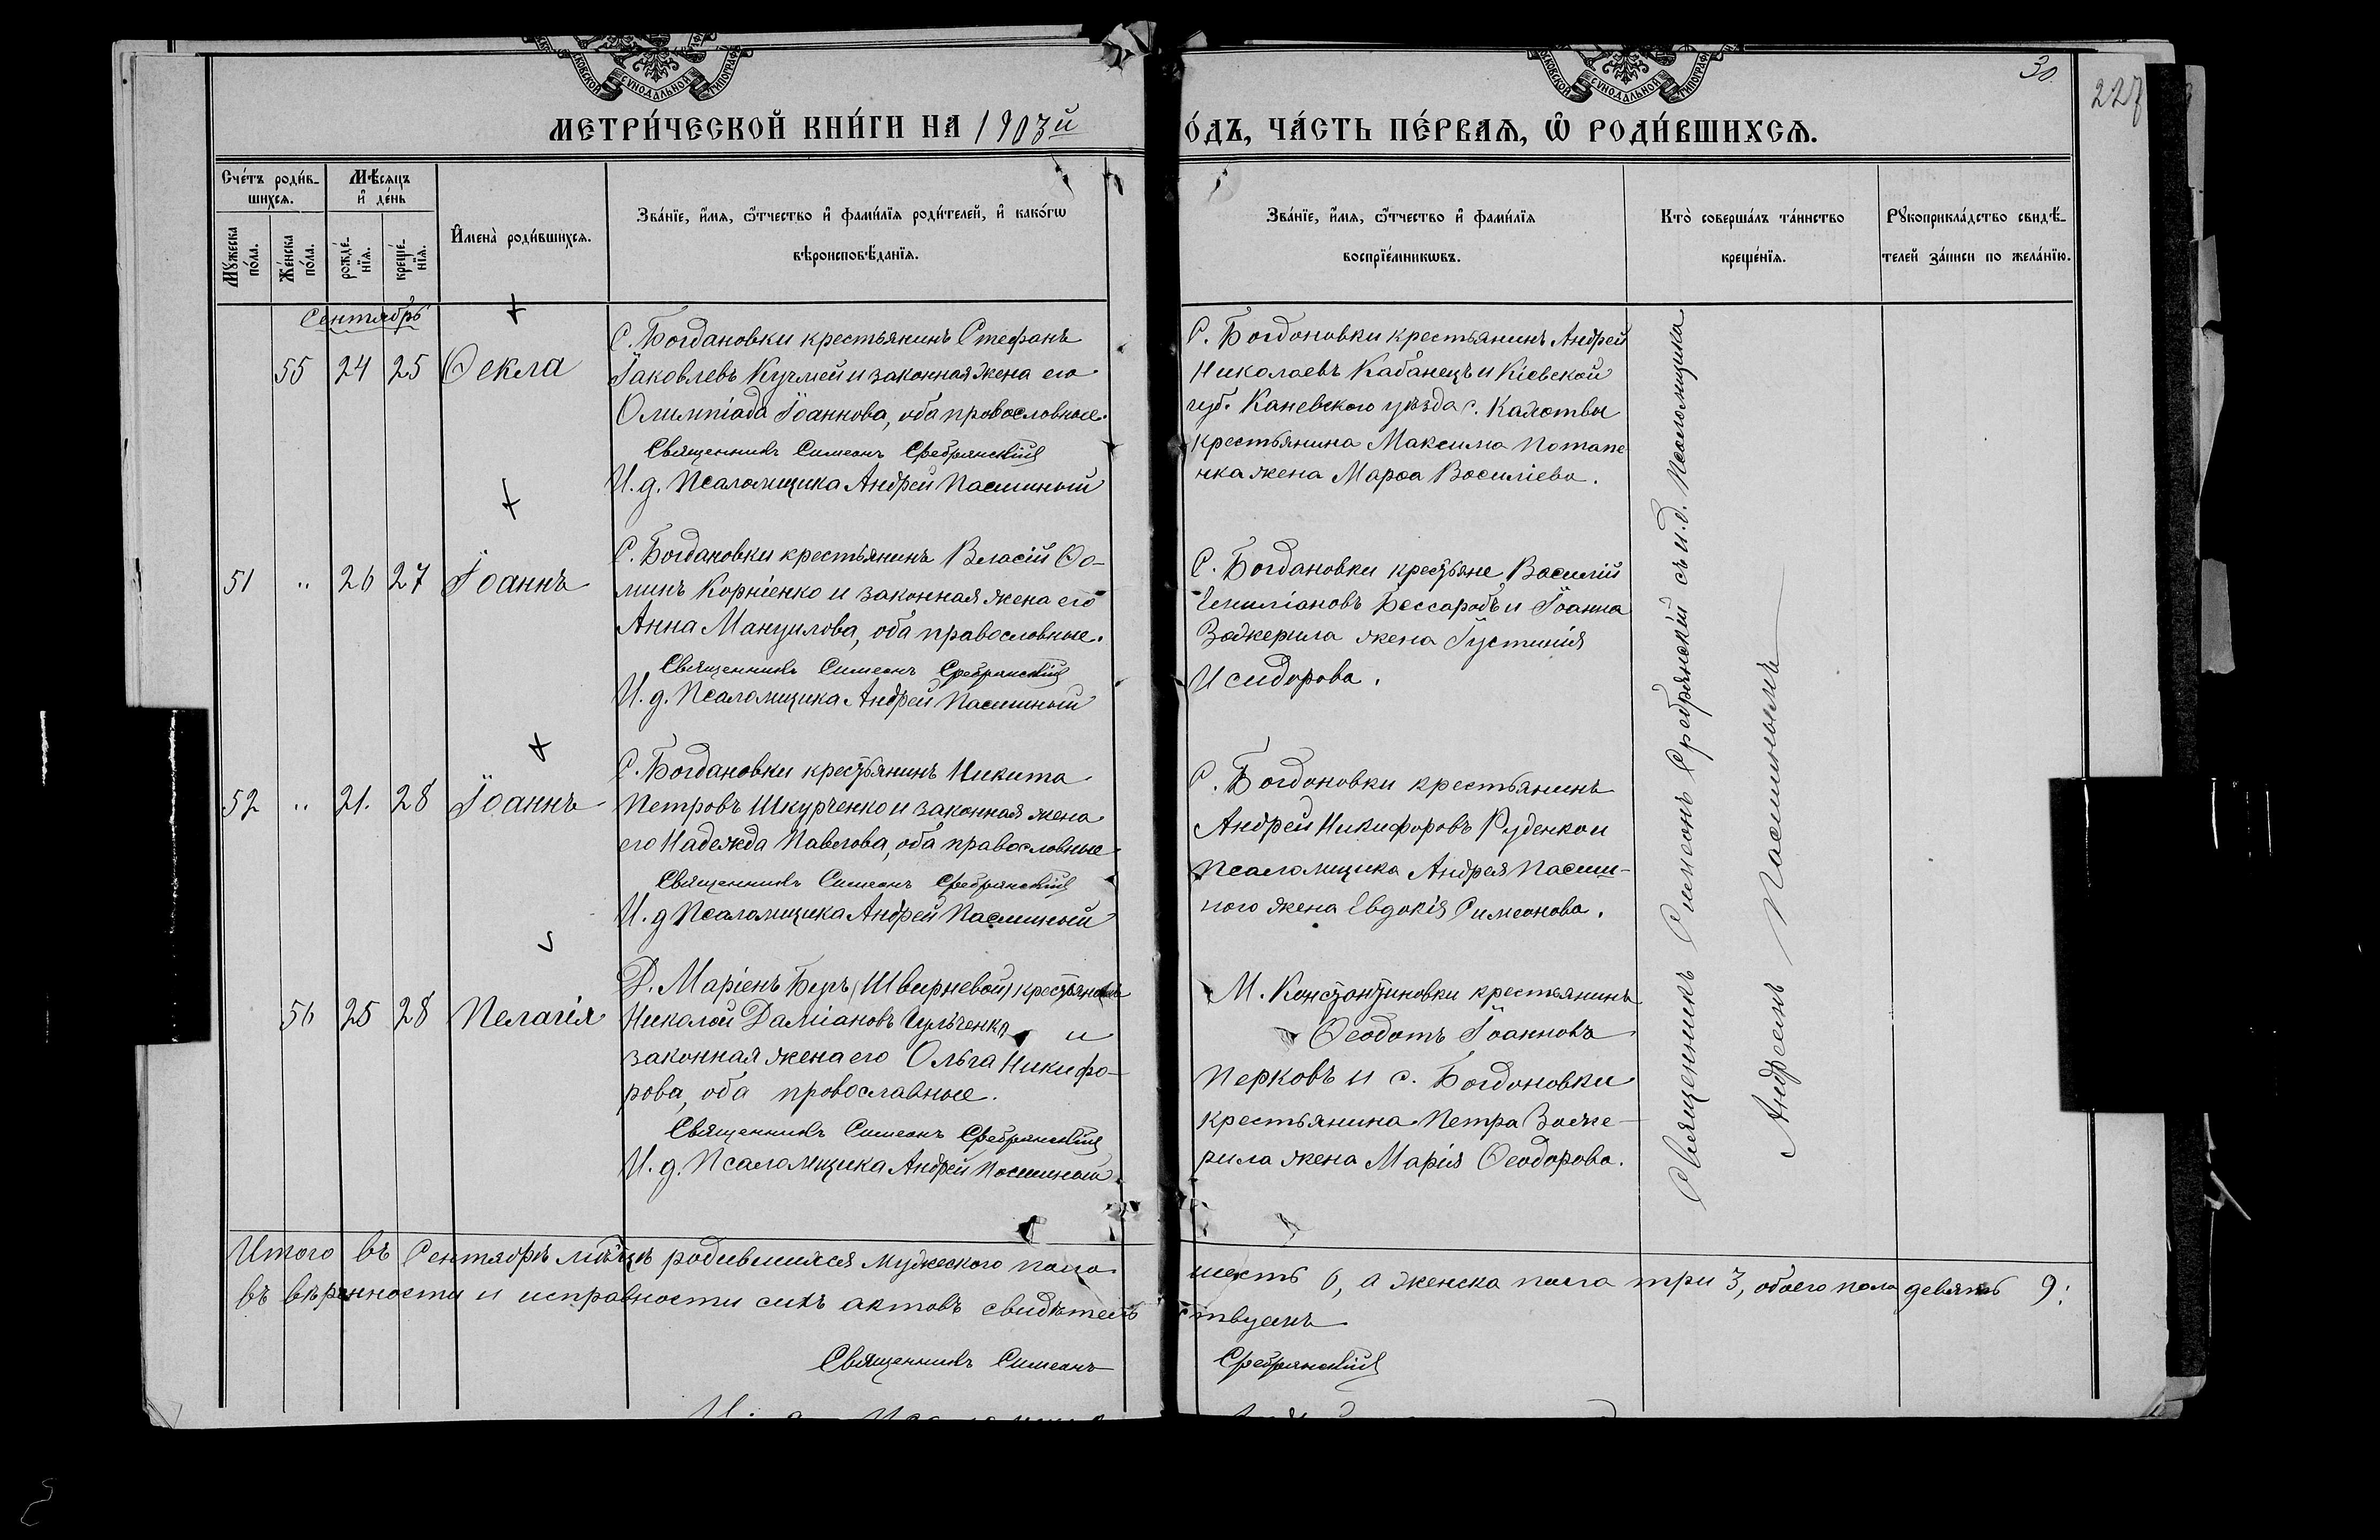 МОСКОВСКОЙ СУНОДАЛЬНОЙ ТИПОГРАФ
СКОВСКОЙ СУНОДАЛЬНОЙ ТИПОГРАФ
30
227
МЕТРИ́ЧЕСКОЙ КНИ́ГИ НА 1903й
О́ДЪ, ЧА́СТЬ ПЕ́РВАЯ, Ѡ҆ РОДИ́ВШИХСЯ.
Сче́тъ роди́в-
шихся.
Мѣ́сяцъ
и҆ де́нь
Мꙋ́жеска
по́ла.
Же́нска
по́ла.
рожде́-
нїя.
креще́-
нїя.
И҆мена̀ роди́вшихся.
Зва́нїе, и҆́мя, ѻ҆́тчество и҆ фами́лїя роди́телей, и҆ како́гѡ
вѣроисповѣ́данїя.
Зва́нїе, и҆́мя, ѻ҆́тчество и҆ фами́лїя
воспрїе́мникѡвъ.
Кто̀ соверша́лъ та́инство
креще́нїя.
Рꙋкоприкла́дство свидѣ́-
телей за́писи по жела́нїю.
Сентябрь
55 24 25 Ѳекла
С. Богдановки крестьянинъ Стефанъ
Іаковлевъ Кучмей и законная жена его
Олимпіада Іоаннова, оба православные.
Священникъ Симеонъ Сребрянскій
И. д. Псаломщика Андрей Пасишный
С. Богдановки крестьянинъ Андрей
Николаевъ Кабанецъ и Кіевской
губ. Каневского уѣзда с.
крестьянина Максима Потапе
нка жена Марѳа Василіева.
51 " 26 27 Іоаннъ
С. Богдановки крестьянинъ Власій Ѳо-
минъ Корніенко и законная жена его
Анна Мануилова, оба православные.
Священникъ Симеонъ Сребрянскій
И. д. Псаломщика Андрей Пасишный
С. Богдановки крестьяне Василій
Емиліановъ Бессарабъ и Іоанна
Зажерила жена Іустинія
Исидорова.
52 " 21. 28 Іоаннъ
С. Богдановки крестьянинъ Никита
Петровъ Шкурченко и законная жена
его Надежда Павлова, оба православные
Священникъ Симеонъ Сребрянскій
И. д Псаломщика Андрей Пасишный
С. Богдановки крестьянинъ
Андрей Никифоровъ Руденко и
псаломщика Андрея Пасиш-
ного жена Евдокія Симеонова.
56 25 28 Пелагія
Д. Маріенъ Буръ (Швырневой) крестьянинъ
Николай Даміановъ Чульченко и
законная жена его Ольга Никифо-
рова, оба православные.
Священникъ Симеонъ Сребрянскій
И. д. Псаломщика Андрей Пасишный
М. Константиновки крестьянинъ
Ѳеодотъ Іоанновъ
Перковъ и с. Богдановки
крестьянина Петра Заже-
рила жена Марія Ѳеодорова.
Священникъ Симеонъ Сребрянскій съ и.д. Псаломщика
Андреемъ Пасишнымъ
Итого въ Сентябрѣ мѣсяцѣ родившихся мужеского пола шесть 6, а женска пола три 3, обоего пола девять 9:
въ вѣрности и исправности сихъ актовъ свидѣтельствуемъ
Священникъ Симеонъ Сребрянскій